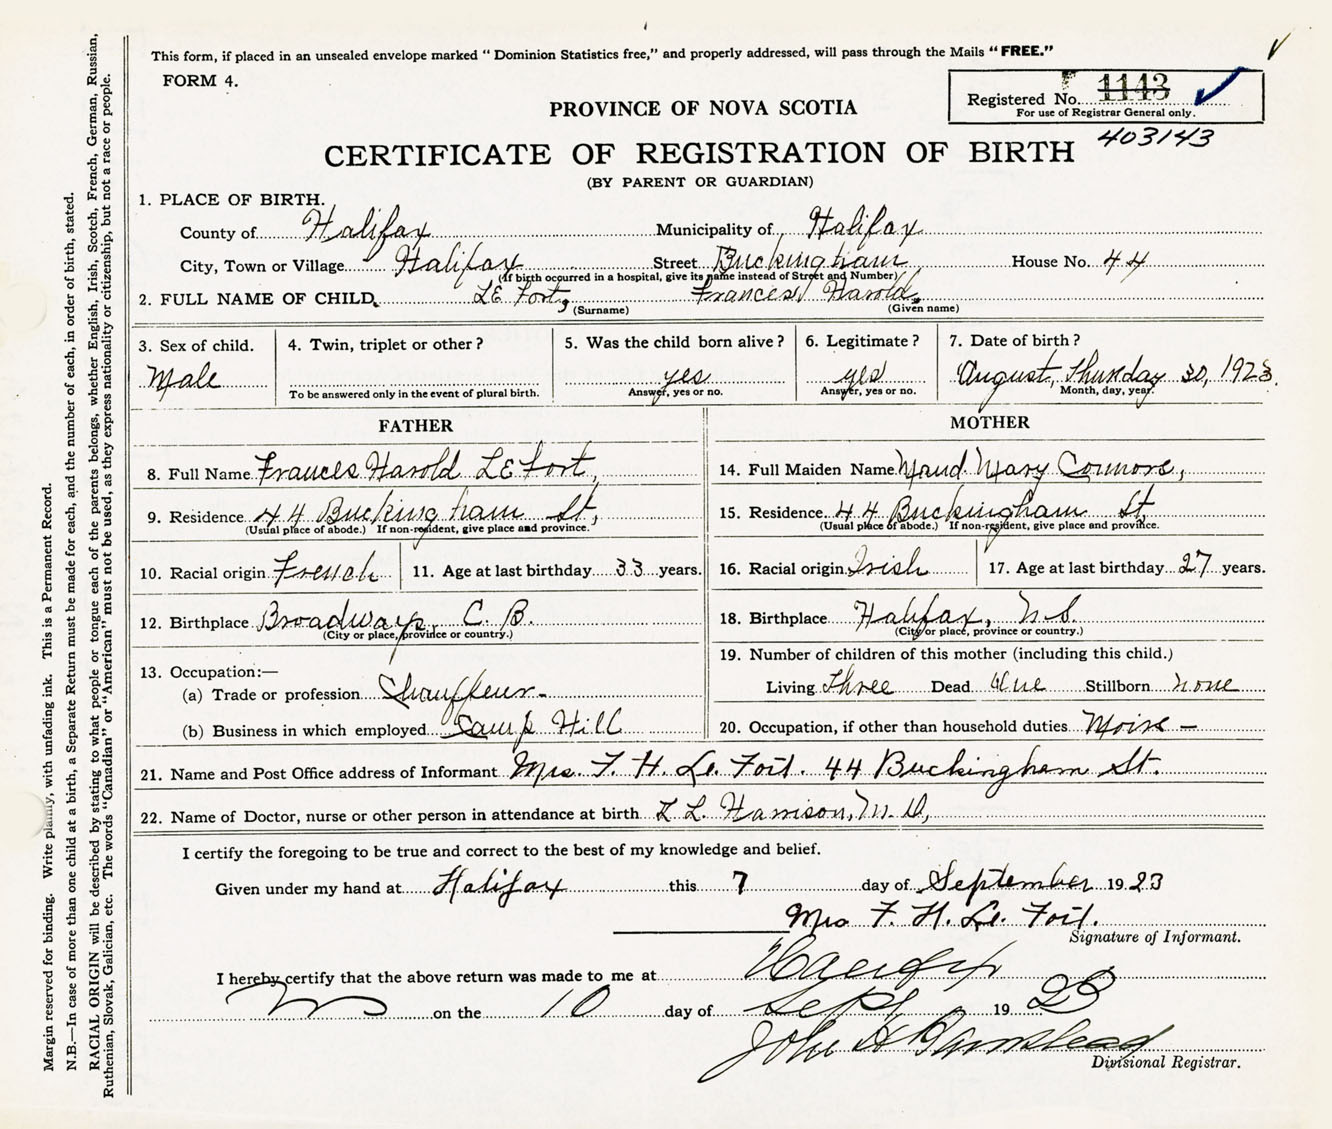 This form, if placed in an unsealed envelope marked "Dominion Statistics free," and properly addressed, will pass through the Mails "FREE."
FORM 4.
Registered No. 1143
For use of Registrar General only.
403143
PROVINCE OF NOVA SCOTIA
CERTIFICATE OF REGISTRATION OF BIRTH
(BY PARENT OR GUARDIAN)
1. PLACE OF BIRTH.
County of Halifax Municipality of Halifax
City, Town or Village Halifax Street Buckingham House No. 44
(If birth occurred in a hospital, give its name instead of Street and Number)
2. FULL NAME OF CHILD. LE Fort, Frances, Harold,
(Surname) (Given name)
3. Sex of child. 4. Twin, triplet or other? 5. Was the child born alive? 6. Legitimate? 7. Date of birth?
Male yes yes August, Thursday 30, 1923.
To be answered only in the event of plural birth. Answer, yes or no. Answer, yes or no. Month, day, year.
FATHER MOTHER
8. Full Name Frances Harold LE Fort, 14. Full Maiden Name Maud Mary Connors,
9. Residence 44 Buckingham St, 15. Residence 44 Buckingham St,
(Usual place of abode.) If non-resident, give place and province. (Usual place of abode.) If non-resident, give place and province.
10. Racial origin French 11. Age at last birthday 33 years. 16. Racial origin Irish 17. Age at last birthday 27 years.
12. Birthplace Broadways, C. B. 18. Birthplace Halifax, N.S.
(City or place, province or country.) (City or place, province or country.)
19. Number of children of this mother (including this child.)
13. Occupation:—
(a) Trade or profession Chauffeur- Living Three Dead Stillborn none
(b) Business in which employed Camp Hill 20. Occupation, if other than household duties
21. Name and Post Office address of Informant Mrs. F. H. Le Fort. 44 Buckingham St.
22. Name of Doctor, nurse or other person in attendance at birth L. Harrison, M. D,
I certify the foregoing to be true and correct to the best of my knowledge and belief.
Given under my hand at Halifax this 7 day of September 1923
Mrs F. H. Le Fort.
Signature of Informant.
I hereby certify that the above return was made to me at Halifax
on the 10 day of Sept 1923
John A Barnstead
Divisional Registrar.
Margin reserved for binding. Write plainly, with unfading ink. This is a Permanent Record.
N.B.—In case of more than one child at a birth, a Separate Return must be made for each, and the number of each, in order of birth, stated.
RACIAL ORIGIN will be described by stating to what people or tongue each of the parents belongs, whether English, Irish, Scotch, French, German, Russian,
Ruthenian, Slovak, Galician, etc. The words "Canadian" or "American" must not be used, as they express nationality or citizenship, but not a race or people.